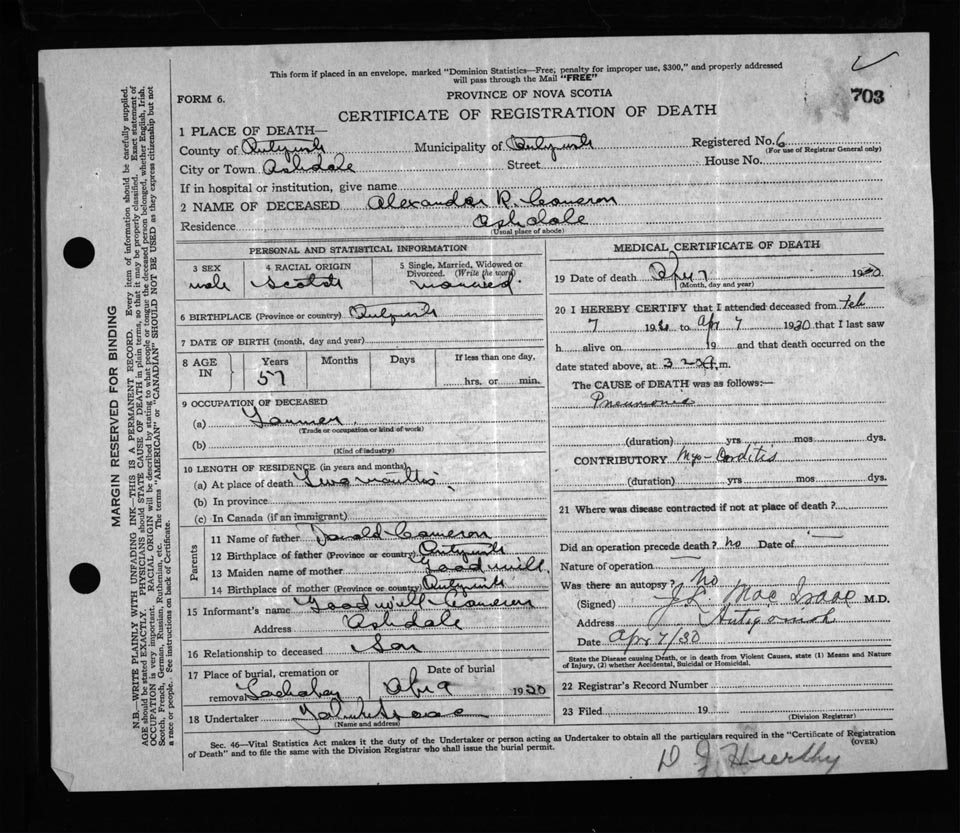 This form if placed in an envelope, marked "Dominion Statistics—Free, penalty for improper use, $300," and properly addressed
will pass through the Mail "FREE"
703
FORM 6.
PROVINCE OF NOVA SCOTIA
CERTIFICATE OF REGISTRATION OF DEATH
1 PLACE OF DEATH—
County of Antigonish Municipality of Antigonish Registered No. 6
(For use of Registrar General only)
City or Town Ashdale Street House No.
If in hospital or institution, give name
2 NAME OF DECEASED Alexander R. Cameron
Residence Ashdale
(Usual place of abode)
PERSONAL AND STATISTICAL INFORMATION
3 SEX male
4 RACIAL ORIGIN Scotch
5 Single, Married, Widowed or
Divorced. (Write the word)
married.
6 BIRTHPLACE (Province or country) Antigonish
7 DATE OF BIRTH (month, day and year)
8 AGE IN Years Months Days If less than one day,
57 hrs. or min.
9 OCCUPATION OF DECEASED
(a) Farmer
(Trade or occupation or kind of work)
(b)
(Kind of industry)
10 LENGTH OF RESIDENCE (in years and months)
(a) At place of death Two months
(b) In province
(c) In Canada (if an immigrant)
Parents
11 Name of father Donald Cameron
12 Birthplace of father (Province or country) Antigonish
13 Maiden name of mother Goodwill
14 Birthplace of mother (Province or country) Antigonish
15 Informant's name Goodwill Cameron
Address Ashdale
16 Relationship to deceased Son
17 Place of burial, cremation or Date of burial
removal Lochaber Apr 9 1930
18 Undertaker
(Name and address)
MEDICAL CERTIFICATE OF DEATH
19 Date of death Apr 7 1930
(Month, day and year)
20 I HEREBY CERTIFY that I attended deceased from Feb
7 1930 to Apr 7 1930 that I last saw
h alive on 19 and that death occurred on the
date stated above, at m.
The CAUSE of DEATH was as follows:—
Pneumonia
(duration) yrs mos dys.
CONTRIBUTORY Myo-Carditis
(duration) yrs mos dys.
21 Where was disease contracted if not at place of death?
Did an operation precede death? no Date of —
Nature of operation
Was there an autopsy? No
(Signed) J. L. MacIsaac M.D.
Address Antigonish
Date Apr 7/30
State the Disease causing Death, or in death from Violent Causes, state (1) Means and Nature
of Injury, (2) whether Accidental, Suicidal or Homicidal.
22 Registrar's Record Number
23 Filed 19
(Division Registrar)
Sec. 46—Vital Statistics Act makes it the duty of the Undertaker or person acting as Undertaker to obtain all the particulars required in the "Certificate of Registration
of Death" and to file the same with the Division Registrar who shall issue the burial permit.
(OVER)
MARGIN RESERVED FOR BINDING
N.B.—WRITE PLAINLY WITH UNFADING INK—THIS IS A PERMANENT RECORD. Every item of information should be carefully supplied.
AGE should be stated EXACTLY. PHYSICIANS should STATE CAUSE OF DEATH in plain terms, so that it may be properly classified. Exact statement of
OCCUPATION is very important. RACIAL ORIGIN will be described by stating to what people or tongue the deceased person belonged, whether English, Irish,
Scotch, French, German, Russian, Ruthenian, etc. The terms "AMERICAN" or "CANADIAN" SHOULD NOT BE USED as they express citizenship but not
a race or people. See instructions on back of Certificate.